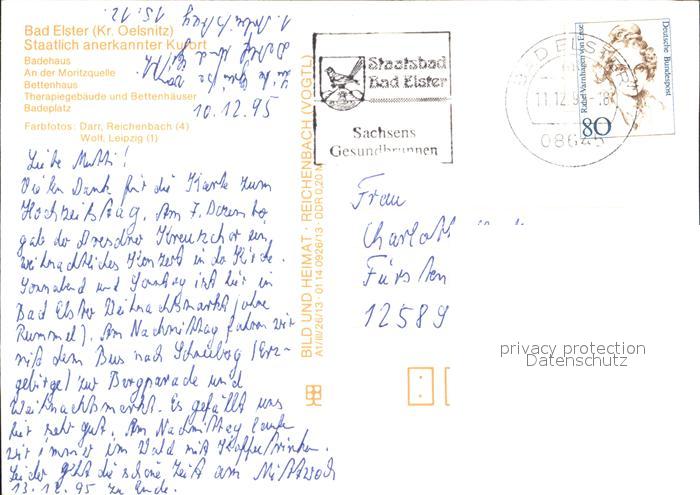 Bad Elster (Kr. Oelsnitz)
Staatlich anerkannter Kurort
Badehaus
An der Moritzquelle
Bettenhaus
Therapiegebäude und Bettenhäuser
Badeplatz
Farbfotos: Darr, Reichenbach (4)
Wolf, Leipzig (1)
10.12.95
Liebe Mutti!
Vielen Dank für die Karte zum
Hochzeitstag. Am 7. Dezember
gab der Dresdner Kreuzchor ein
weihnachtliches Konzert in der Kirche.
Sonnabend und Sonntag ist hier in
Bad Elster Weihnachtsmarkt (ohne
Rummel). Am Nachmittag fahren wir
mit dem Bus nach Schneeberg (Erz-
gebirge) zur Bergparade und
Weihnachtsmarkt. Es gefällt uns
hier sehr gut. Am Nachmittag laufen
wir immer im Wald mit Kaffeetrinken.
Leider geht die schöne Zeit am Mittwoch
13.12.95 zu Ende.
15.12.
BILD UND HEIMAT · REICHENBACH (VOGTL)
A1/III/26/13 · 01 14 0926/13 · DDR 0,20 M
Staatsbad
Bad Elster
Sachsens
Gesundbrunnen
BAD ELSTER
11.12.9
08645
Rahel Varnhagen von Ense
Deutsche Bundespost
80
Frau
Charlott
Fürsten
12589
privacy protection
Datenschutz